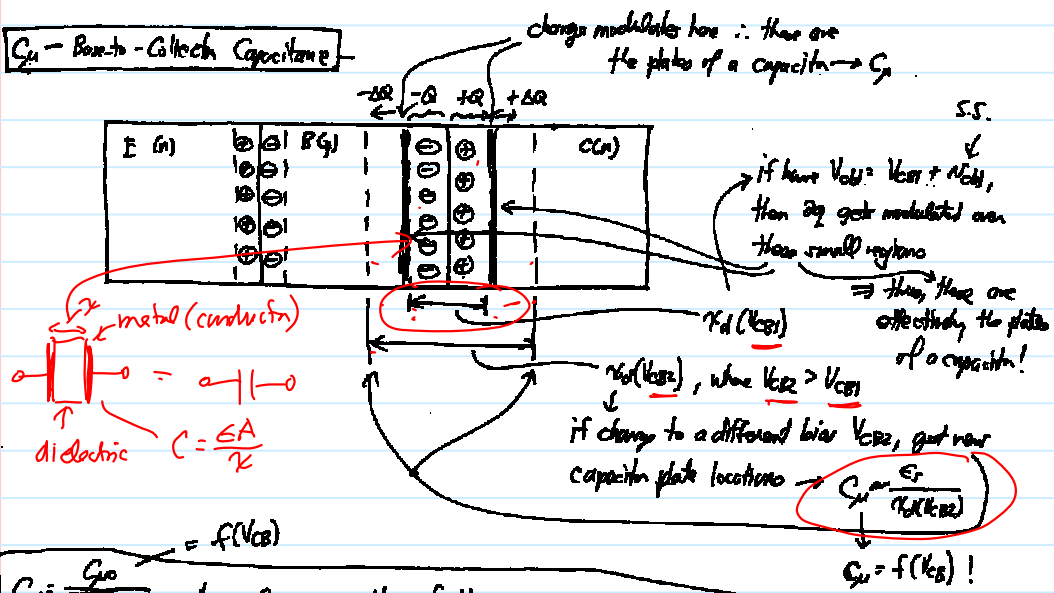 Cμ - Base-to-Collector Capacitance
charge modulates here ∴ these are
the plates of a capacitor → Cμ
-ΔQ -Q +Q +ΔQ
E (n) B(p) C(n)
S.S.
if have Vcb1 = VCB1 + vcb1,
then
gets modulated over
these small regions
⇒ thus, these are
effectively the plates
of a capacitor!
x
metal (conductor)
=
dielectric
C = εA/x
xd(VCB1)
xd(VCB2), where VCB2 > VCB1
if change to a different bias VCB2, get new
capacitor plate locations → Cμ ~ εs/xd(VCB2)
Cμ = f(VCB) !
= f(VCB)
Cμ0